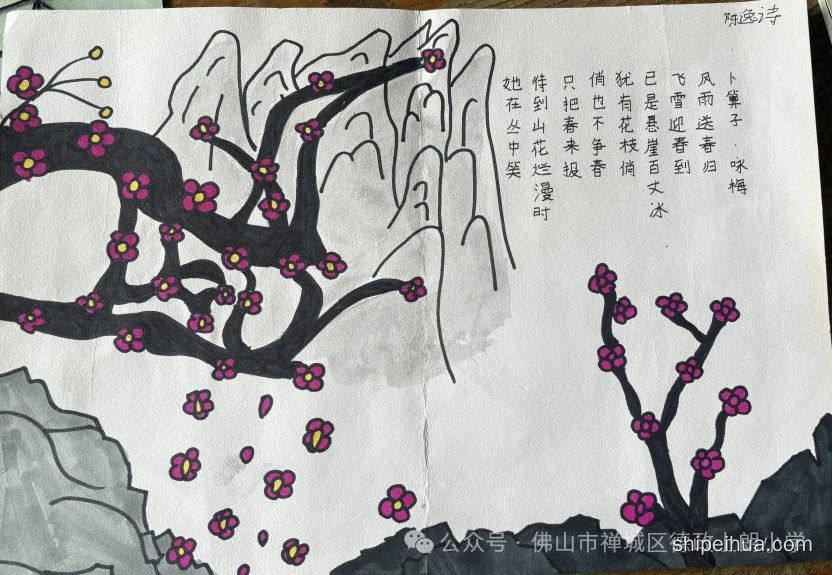 陈逸诗
卜算子·咏梅
风雨送春归
飞雪迎春到
已是悬崖百丈冰
犹有花枝俏
俏也不争春
只把春来报
待到山花烂漫时
她在丛中笑
公众号·佛山市禅城区德政上朗小学
shipeihua.com